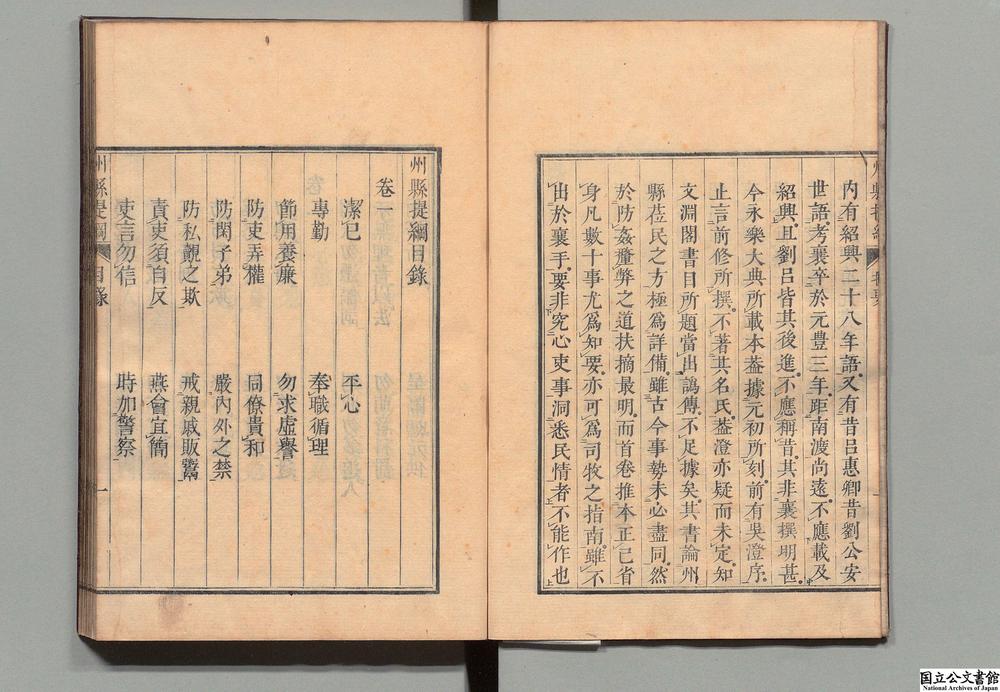 內有紹興二十八年語又有昔呂惠卿昔劉公安
世語考襄卒於元豐三年距南渡尚遠不應載及
紹興且劉呂皆其後進不應稱昔其非襄撰明甚
今永樂大典所載本葢據元初所刻前有吳澄序
止言前修所撰不著其名氏葢澄亦疑而未定知
文淵閣書目所題當出譌傳不足據矣其書論州
縣莅民之方極爲詳備雖古今事勢未必盡同然
於防姦釐弊之道抉摘最明而首卷推本正已省
身凡數十事尤爲知要亦可爲司牧之指南雖不
出於襄手要非究心吏事洞悉民情者不能作也
州縣提綱目錄
卷一
潔已 平心
專勤 奉職循理
節用養廉 勿求虛譽
防吏弄權 同僚貴和
防閑子弟 嚴內外之禁
防私覿之欺 戒親戚販鬻
責吏須自反 燕會宜簡
吏言勿信 時加警察
州縣提綱 目錄 一
国立公文書館
National Archives of Japan